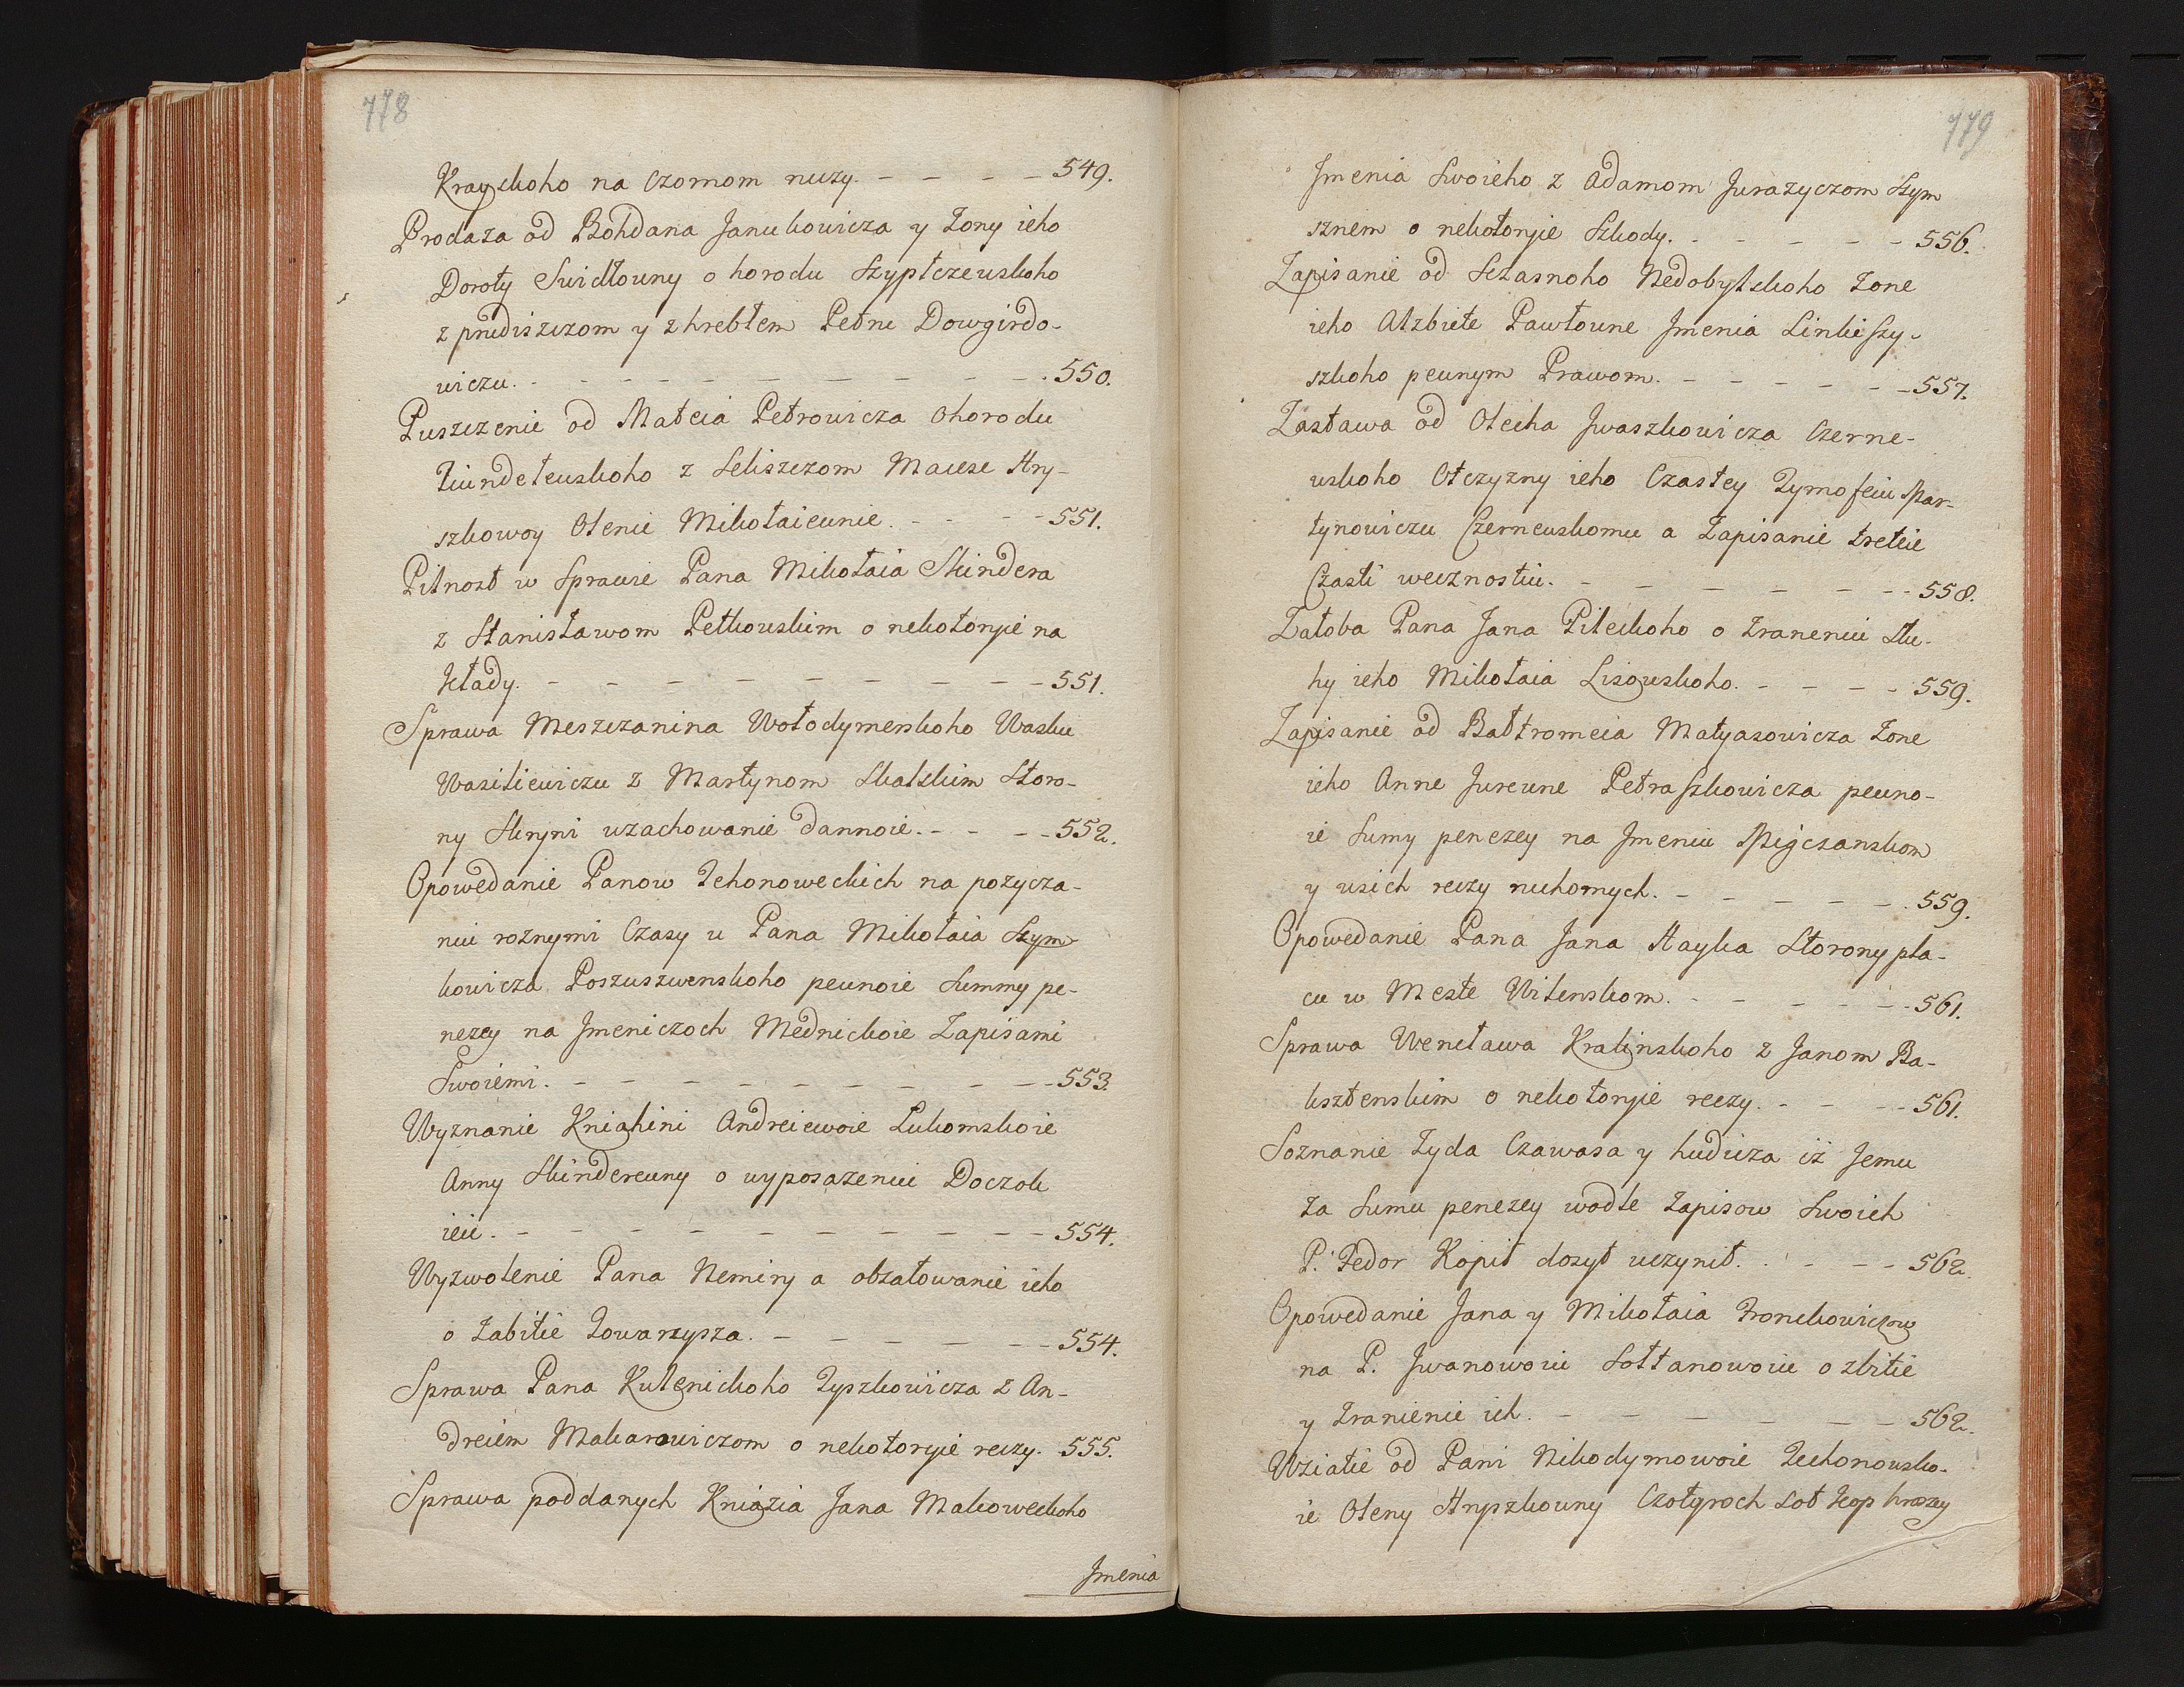 778
Krayskoho na Czornom ruczy. - - - - 549.
Prodaża od Bohdana Janukowicza y Żony ieho
Doroty Swidłowny o horodu Szyptczewskoho
z prudiszczom y z hrebłem Petru Dowgirdo-
wiczu. - - - - - - - - - - 550.
Puszczenie od Matcia Petrowicza Ohorodu
z Seliszczom Mackse Hry-
szkowoy Olenie Mikołaiewnie. - - - - 551.
Pilnost w Sprawie Pana Mikołaia Skindera
z Stanisławom Petkowskim o nekotoryie na
kłady. - - - - - - - - - 551.
Sprawa Meszczanina Wołodymerskoho Wasku
Wasilewiczu z Martynom Skalskim Storo-
ny Skryni uzachowanie dannoie. - - - - 552.
Opowedanie Panow Zehonoweckich na pozycza-
niu roznymi Czasy u Pana Mikołaia Szym-
kowicza Poszuszwenskoho pewnoie Summy pe-
nezey na Imeniczoch Mednickoie Zapisami
Swoiemi. - - - - - - - - - 553.
Wyznanie Kniahini Andreiewoie Lukomskoie
Anny Skinderewny o wyposażeniu Doczok
ieie. - - - - - - - - - - 554.
Wyzwolenie Pana Nemiry a obżałowanie ieho
o Zabitie Towarzysza. - - - - - - 554.
Sprawa Pana Kulenickoho Tyszkowicza z An-
dreiem Makarowiczom o nekotoryie reczy. 555.
Sprawa poddanych Kniazia Jana Makoweckoho
Imenia
779
Imenia Swoieho z Adamom Jurazyczom Szym
sznem o nekotoryie Szkody. - - - - - 556.
Zapisanie od Szczasnoho Nedobylskoho Żone
ieho Alzbiete Pawłowne Imenia Linkieszy-
szkoho pewnym Prawom. - - - - - - 557.
Zastawa od Olecha Iwaszkowicza Czerne-
wskoho Otczyzny ieho Czastey Tymofeiu Mar-
tynowiczu Czernewskomu a Zapisanie tretie
Czasti wecznostiu. - - - - - - 558.
Żałoba Pana Jana Pileckoho o zraneniu Słu-
hy ieho Mikołaia Lisowskoho. - - - - 559.
Zapisanie od Bałtromeia Matyasowicza Żone
ieho Anne Jurewne Petraszkowicza pewno-
ie Sumy penezey na Imeniu Migczanskom
y wsich reczy ruchomych. - - - - - - 559.
Opowedanie Pana Jana Hayka Storony pla-
cu w Meste Wilenskom. - - - - - - 561.
Sprawa Wencława Kralinskoho z Janom Ba-
ksztenskim o nekotoryie reczy. - - - - 561.
Soznanie Żyda Czawasa y hudicza iż Jemu
za Sumu penezey wodle Zapisow Swoich
P. Fedor Kopit dosyt uczynił. - - - - 562.
Opowedanie Jana y Mikołaia Fronckowiczow
na P. Iwanowoiu Sołtanowoiu o zbitie
y zranienie ich. - - - - - - - 562.
Wziatie od Pani Nikodymowoie Techonowsko-
ie Oleny Hryszkowny Czotyroch Sot Kop hroszey